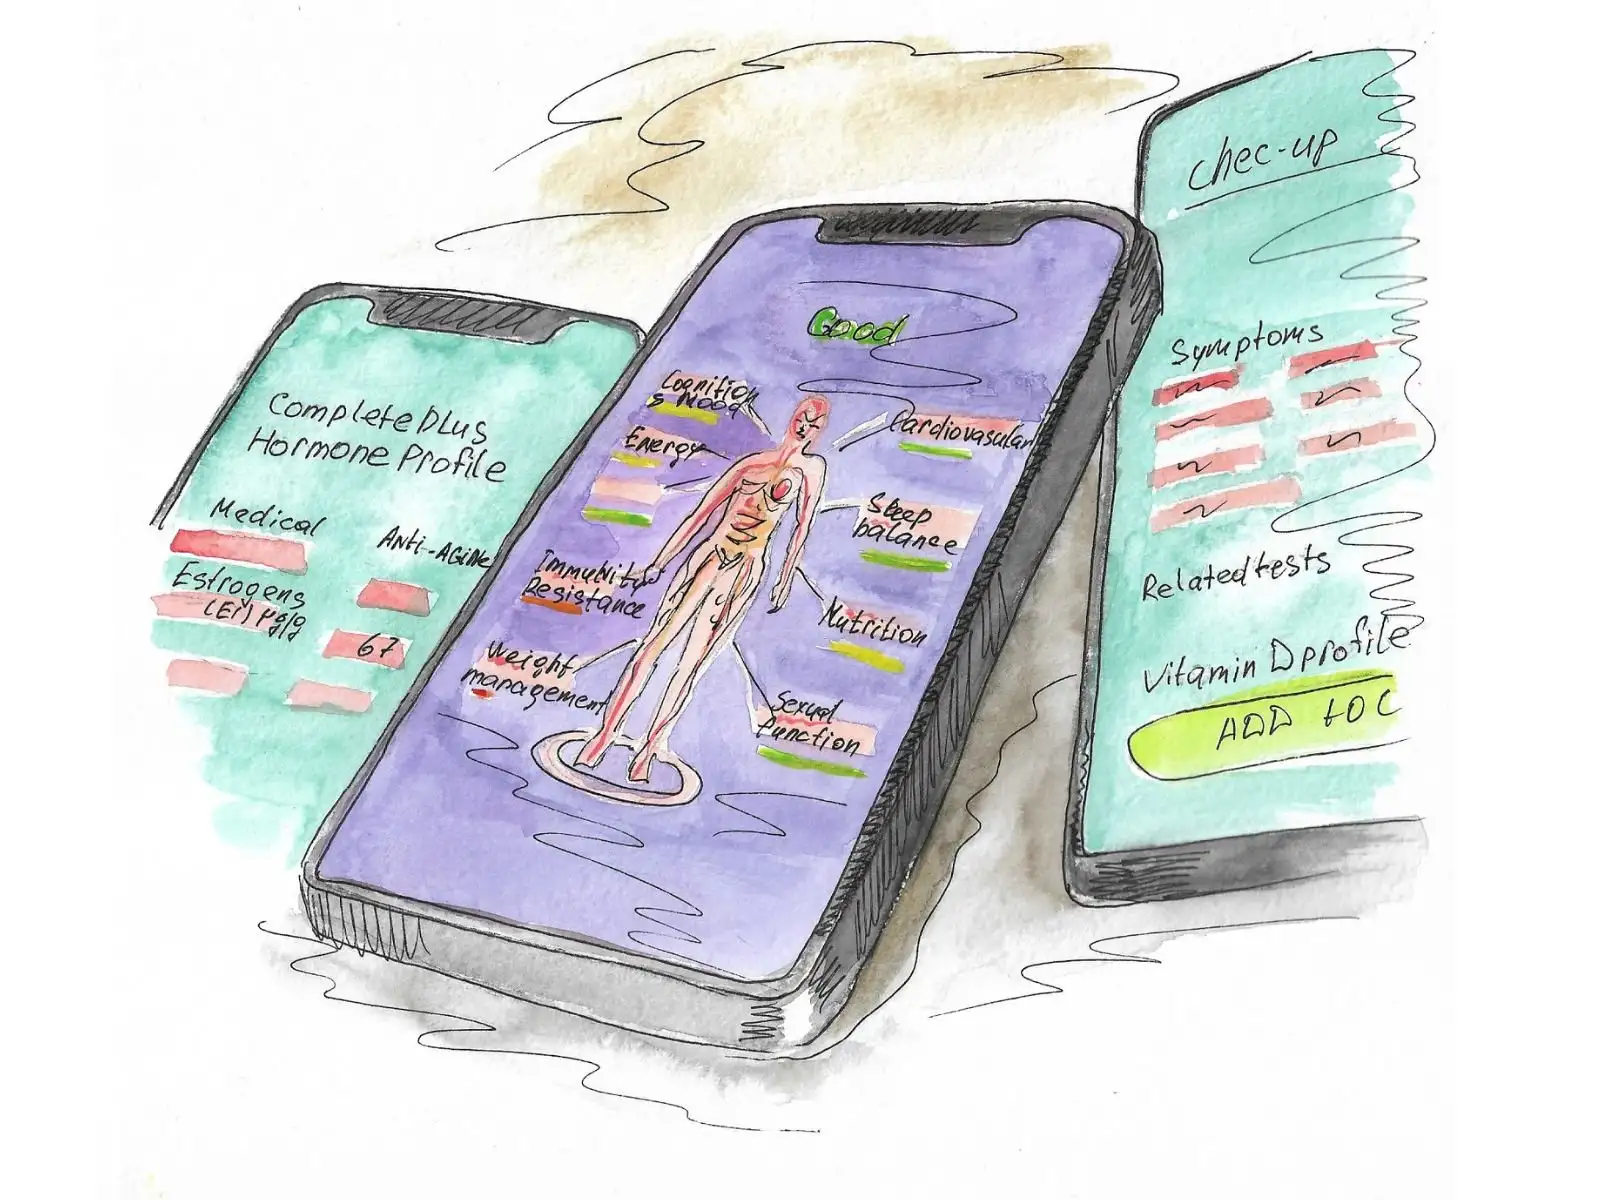 Complete Plus
Hormone Profile
Medical
Anti-Aging
Estrogens
(E1) µg/g
67
Good
Cognition
& Mood
Energy
Immunity
Resistance
Weight
management
Cardiovasular
Sleep
balance
Nutrition
Sexual
function
Chec-up
Symptoms
Related tests
Vitamin D profile
ADD TO C